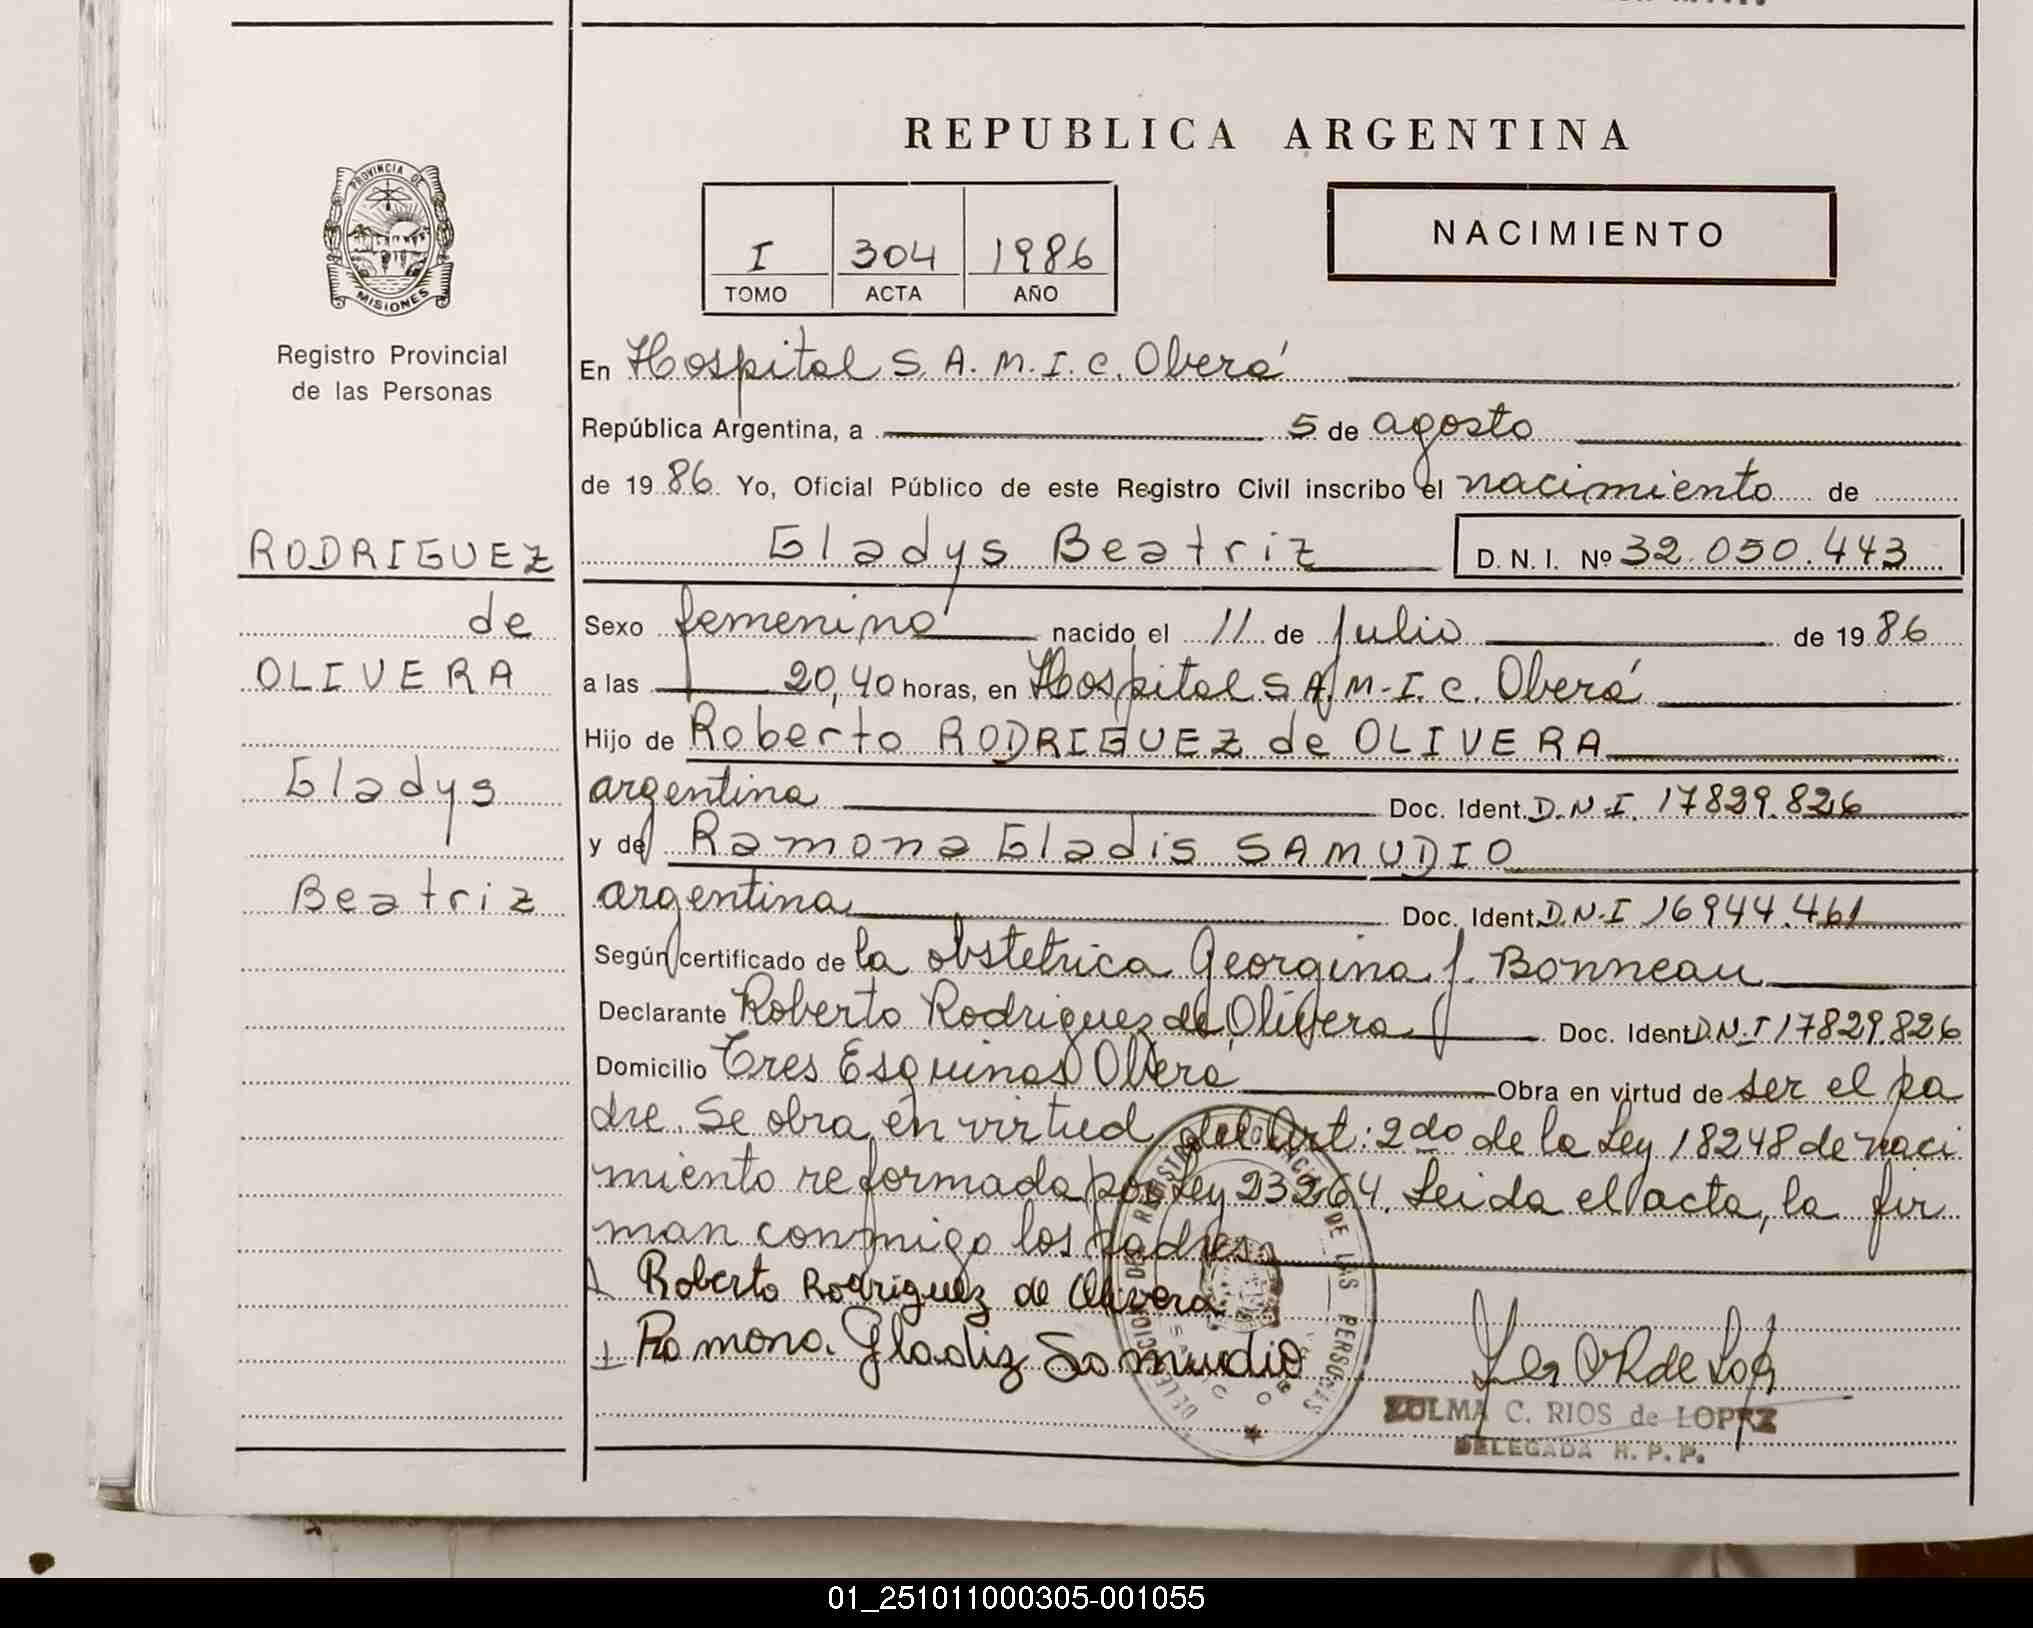 REPUBLICA ARGENTINA
PROVINCIA DE
MISIONES
Registro Provincial
de las Personas
I 304 1986
TOMO ACTA AÑO
NACIMIENTO
En Hospital S. A. M. I. C. Oberá
República Argentina, a 5 de agosto
de 1986. Yo, Oficial Público de este Registro Civil inscribo el nacimiento de
RODRIGUEZ
de
OLIVERA
Gladys
Beatriz
Gladys Beatriz D. N. I. Nº 32.050.443
Sexo femenino nacido el 11 de Julio de 1986
a las 20,40 horas, en Hospital S. A. M. I. C. Oberá
Hijo de Roberto RODRIGUEZ de OLIVERA
argentina Doc. Ident. D.N.I. 17829.826
y de Ramona Gladis SAMUDIO
argentina Doc. Ident. D.N.I 16944.461
Según certificado de la obstetrica Georgina J. Bonneau
Declarante Roberto Rodriguez de Olivera Doc. Ident. D.N.I 17829.826
Domicilio Tres Esquinas Oberá Obra en virtud de ser el pa
dre. Se obra en virtud del Art: 2do de la Ley 18248 de naci
miento reformada por Ley 23264. Leida el acta, la fir
man conmigo los padres
Roberto Rodriguez de Olivera
Ramona Gladiz Samudio
ZULMA C. RIOS de LOPEZ
DELEGADA R. P. P.
01_251011000305-001055